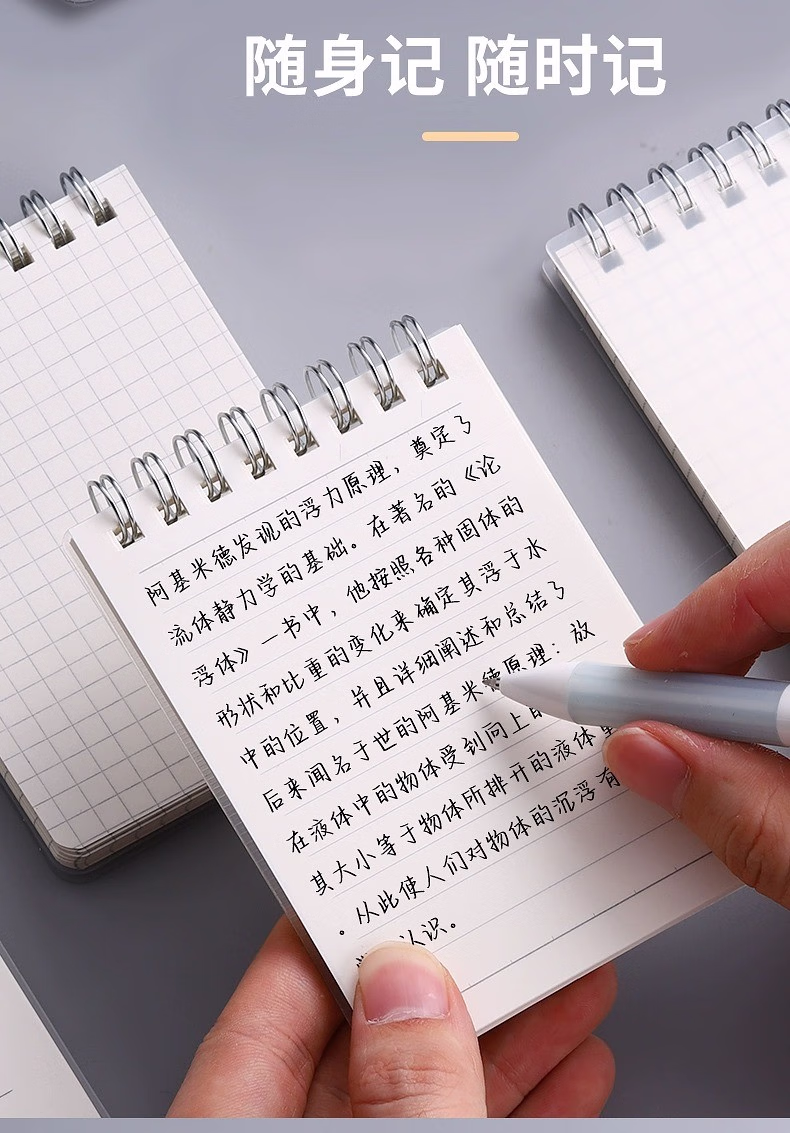 随身记 随时记
阿基米德发现的浮力原理，奠定了
流体静力学的基础。在著名的《论
浮体》一书中，他按照各种固体的
形状和比重的变化来确定其浮于水
中的位置，并且详细阐述和总结了
后来闻名于世的阿基米德原理：放
在液体中的物体受到向上的
其大小等于物体所排开的液体
。从此使人们对物体的沉浮有
认识。